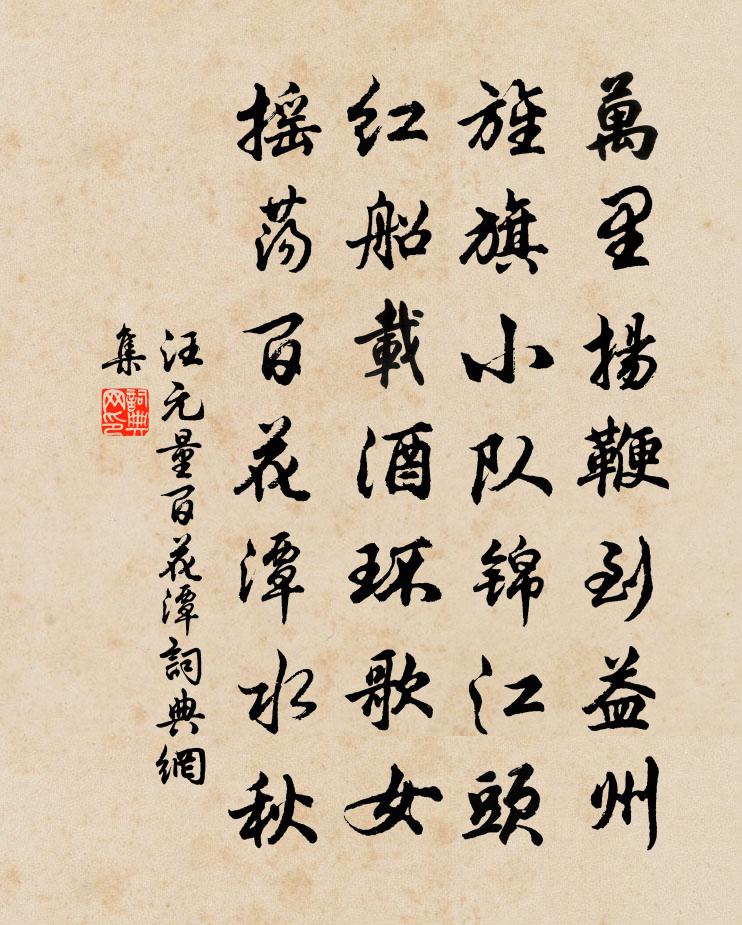 萬里揚鞭到益州
旌旗小队锦江頭
红船載酒环歌女
摇荡百花潭水秋
汪元量百花潭詞典網
集
詞典网印